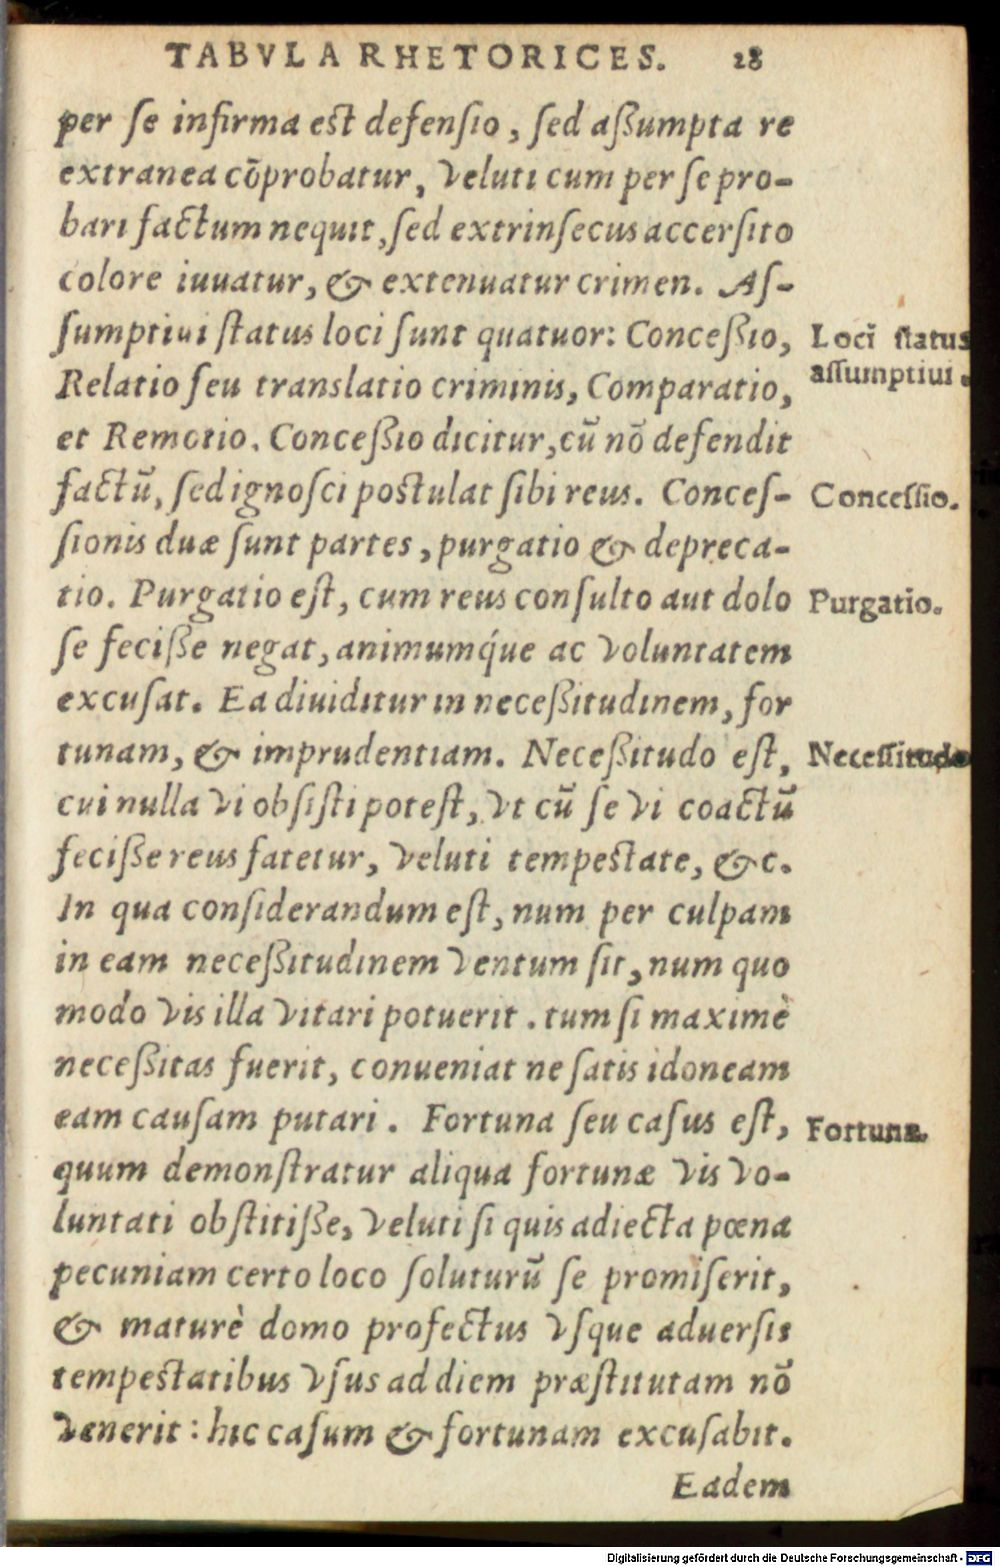 TABVLA RHETORICES. 28
per se infirma est defensio, sed aßumpta re
extranea cōprobatur, veluti cum per se pro-
bari factum nequit, sed extrinsecus accersito
colore iuuatur, & extenuatur crimen. As-
sumptiui status loci sunt quatuor: Conceßio,
Loci status
assumptiui.
Relatio seu translatio criminis, Comparatio,
et Remotio. Conceßio dicitur, cū nō defendit
factū, sed ignosci postulat sibi reus. Conces-
Concessio.
sionis duæ sunt partes, purgatio & depreca-
tio. Purgatio est, cum reus consulto aut dolo
Purgatio.
se feciße negat, animumq́ue ac voluntatem
excusat. Ea diuiditur in neceßitudinem, for
tunam, & imprudentiam. Neceßitudo est,
Necessitudo
cui nulla vi obsisti potest, vt cū se vi coactū
feciße reus fatetur, veluti tempestate, &c.
In qua considerandum est, num per culpam
in eam neceßitudinem ventum sit, num quo
modo vis illa vitari potuerit. tum si maximè
neceßitas fuerit, conueniat ne satis idoneam
eam causam putari. Fortuna seu casus est,
Fortuna.
quum demonstratur aliqua fortunæ vis vo-
luntati obstitiße, veluti si quis adiecta pœna
pecuniam certo loco soluturū se promiserit,
& maturè domo profectus vsque aduersis
tempestatibus vsus ad diem præstitutam nō
venerit: hic casum & fortunam excusabit.
Eadem
Digitalisierung gefördert durch die Deutsche Forschungsgemeinschaft - DFG